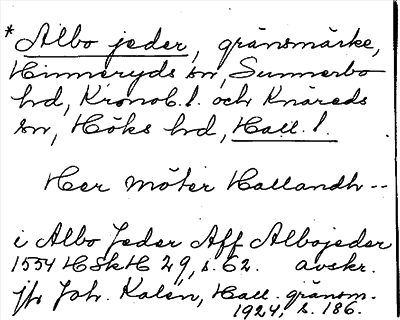 * Albo jeder, gränsmärke,
Hinneryds sn, Sunnerbo
hd, Kronob. l. och Knäreds
sn, Höks hd, Hall. l.
Her möter Hallandh --
i Albo Jeder Aff Albojeder
1554 HSkH 29, s. 62. avskr.
jfr Joh. Kalén, Hall. gränsm.
1924, s. 186.